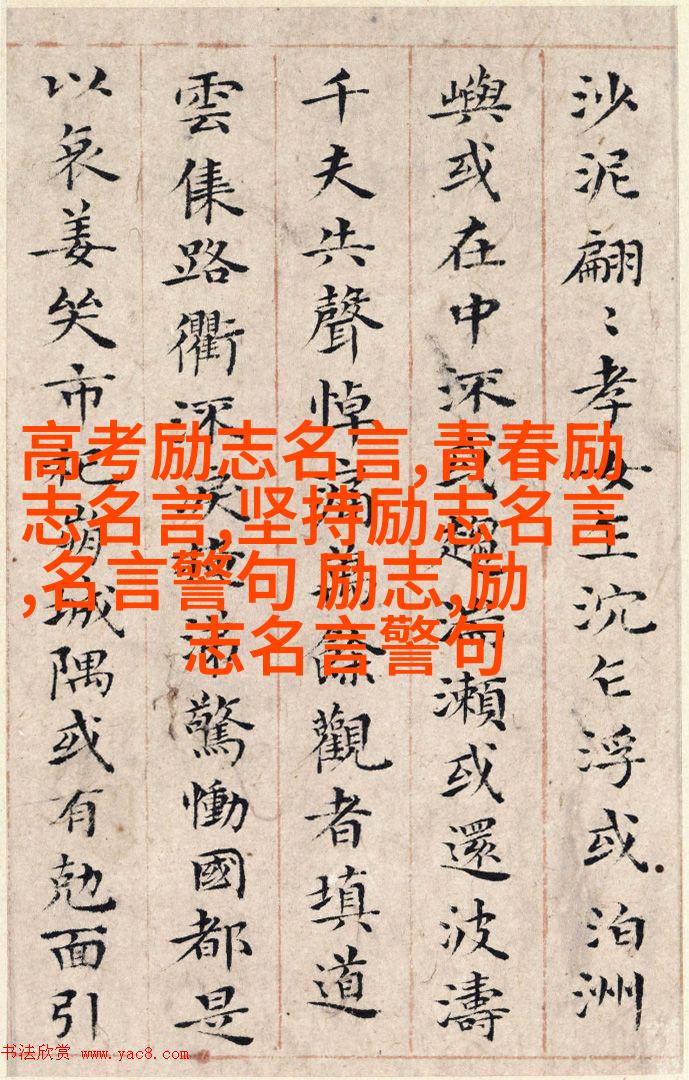 沙泥翩〻孝女乍沉乍浮或泊洲
嶼或在中深或趨湍瀨或還波濤
千夫共聲悼痛萬餘觀者填道
雲集路衢流淚掩涕驚慟國都是
以哀姜哭市杞崩城隅或有尅面引
高考励志名言,青春励
志名言,坚持励志名言
,名言警句 励志,励
志名言警句
书法欣赏 www.yac8.com